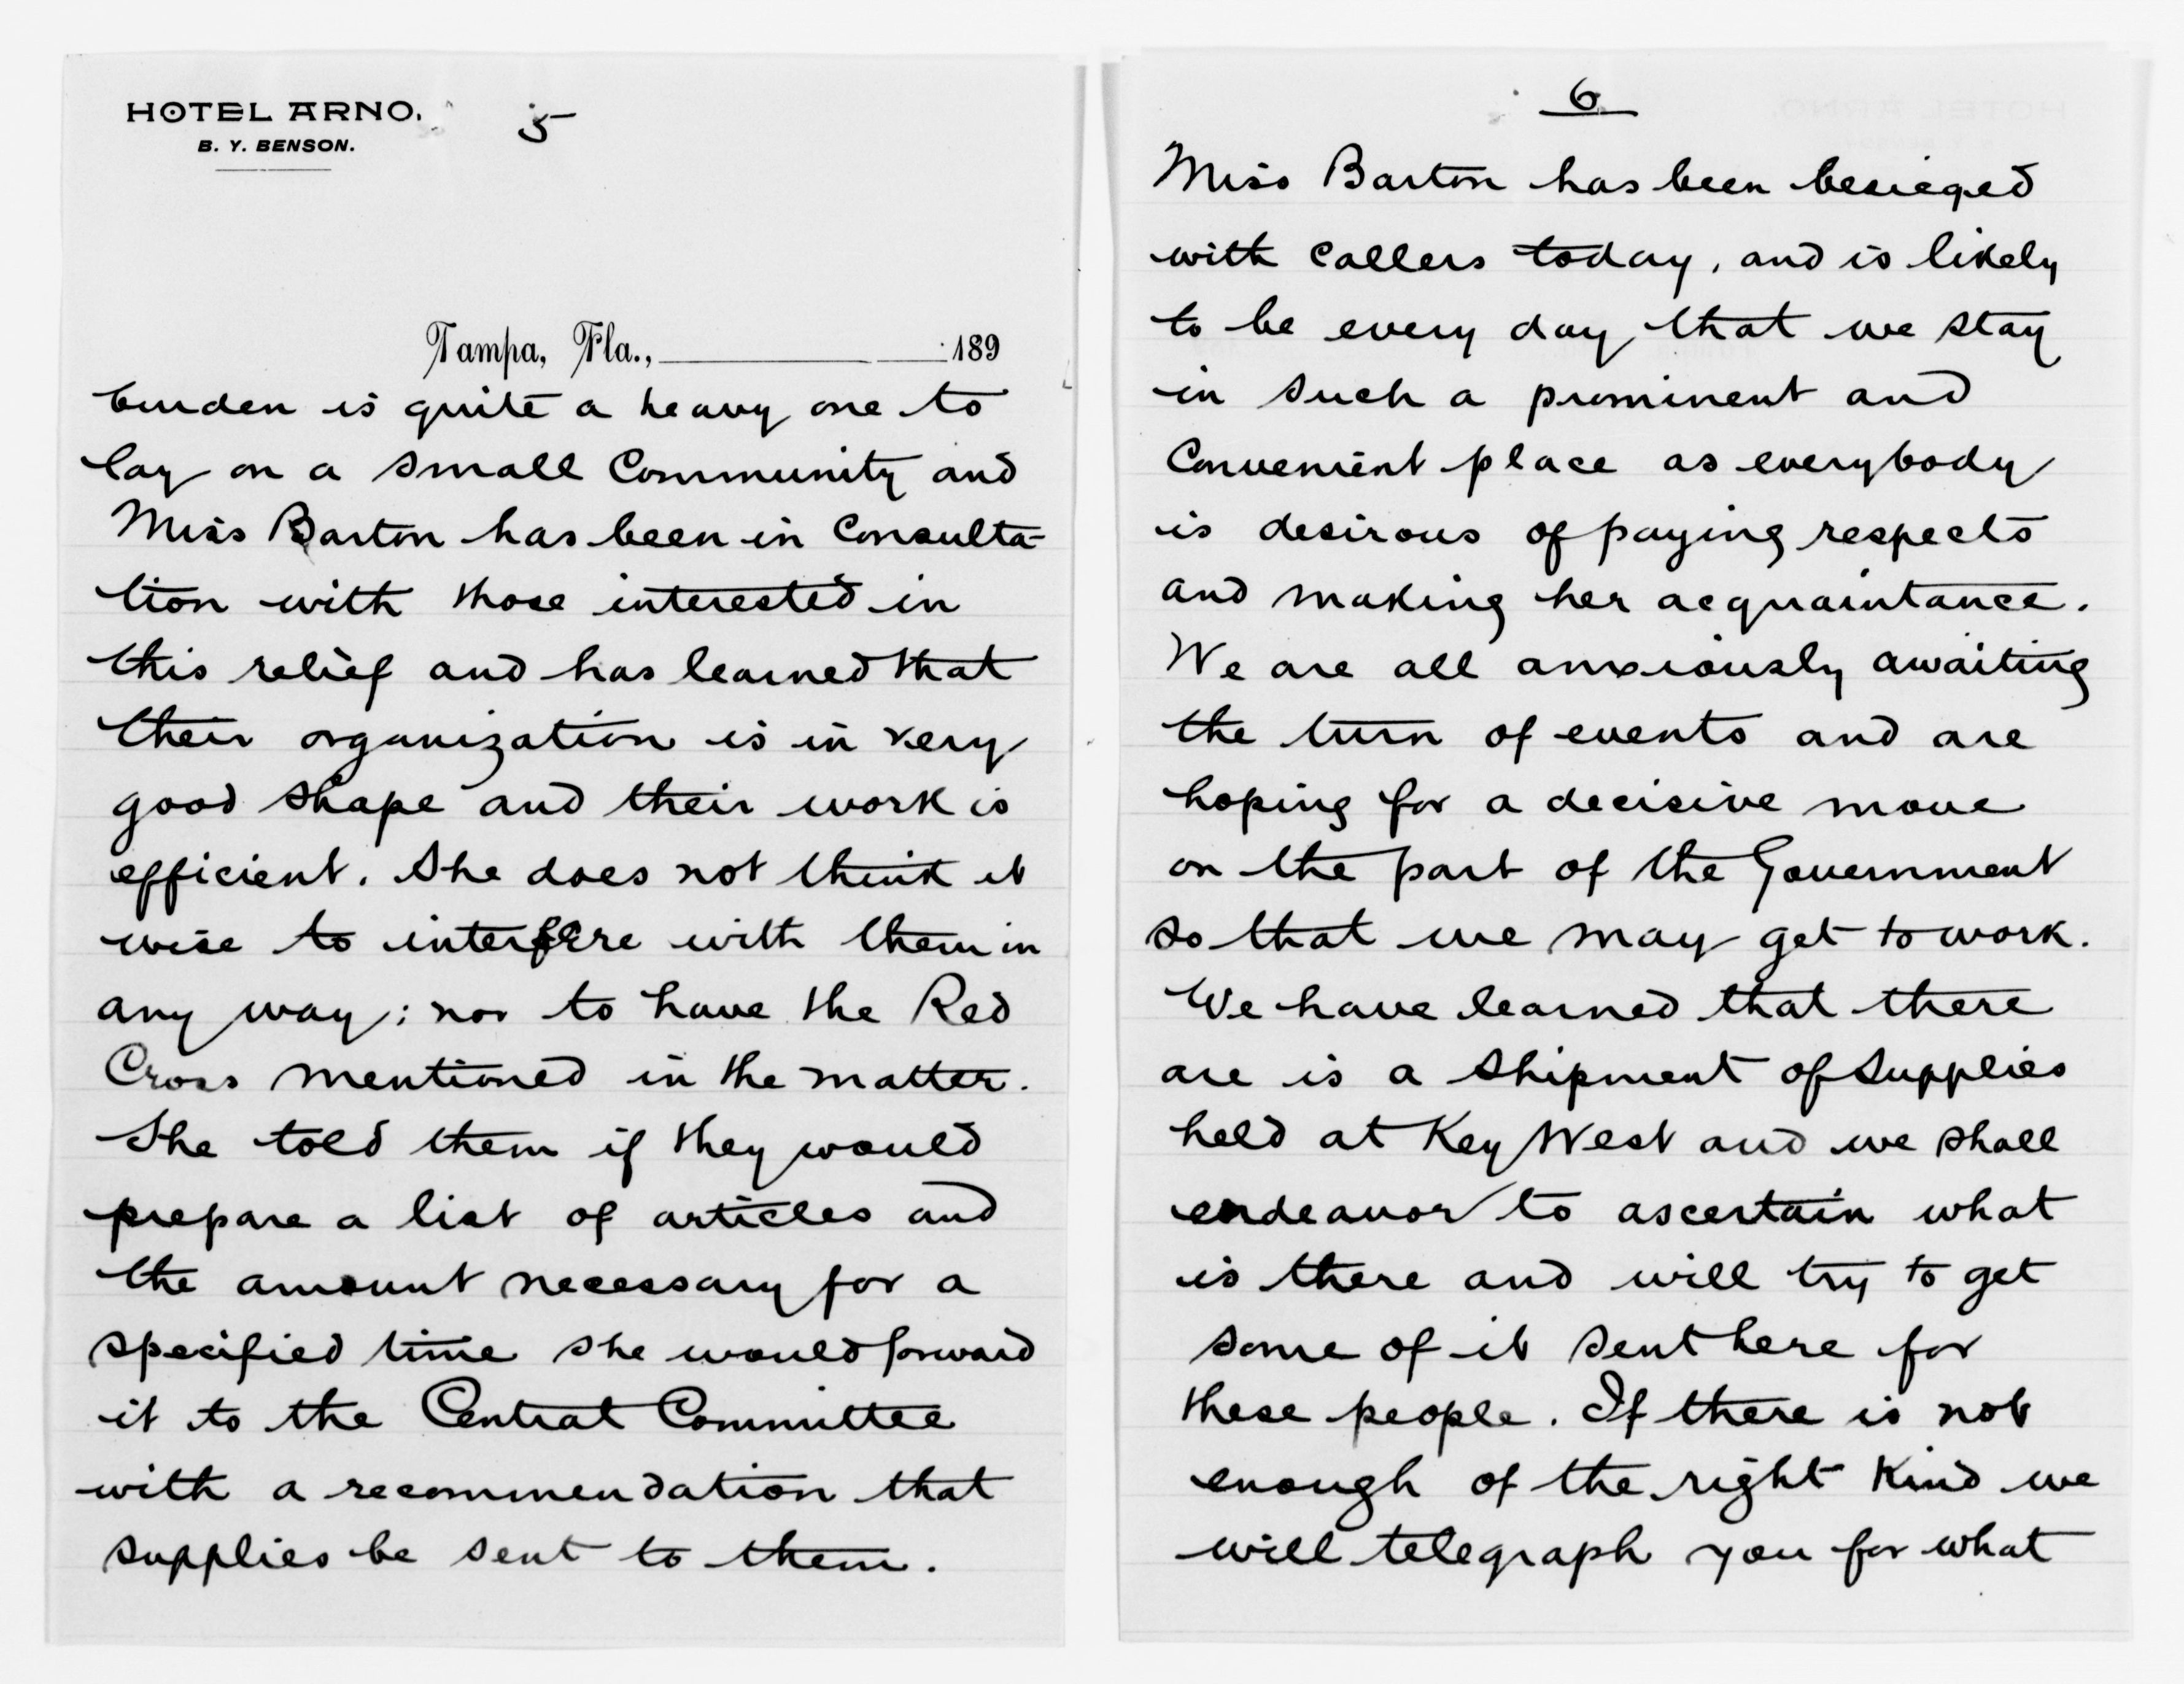 HOTEL ARNO.
B. Y. BENSON.
5
Tampa, Fla., 189
burden is quite a heavy one to
lay on a small Community and
Miss Barton has been in Consulta-
tion with those interested in
this relief and has learned that
their organization is in very
good shape and their work is
efficient. She does not think it
wise to interfere with them in
any way; nor to have the Red
Cross mentioned in the matter.
She told them if they would
prepare a list of articles and
the amount necessary for a
specified time she would forward
it to the Central Committee
with a recommendation that
supplies be sent to them.
6
Miss Barton has been besieged
with callers today, and is likely
to be every day that we stay
in such a prominent and
Convenient place as everybody
is desirous of paying respects
and making her acquaintance.
We are all anxiously awaiting
the turn of events and are
hoping for a decisive move
on the part of the Government
so that we may get to work.
We have learned that there
are is a shipment of supplies
held at Key West and we shall
endeavor to ascertain what
is there and will try to get
some of it sent here for
these people. If there is not
enough of the right kind we
will telegraph you for what